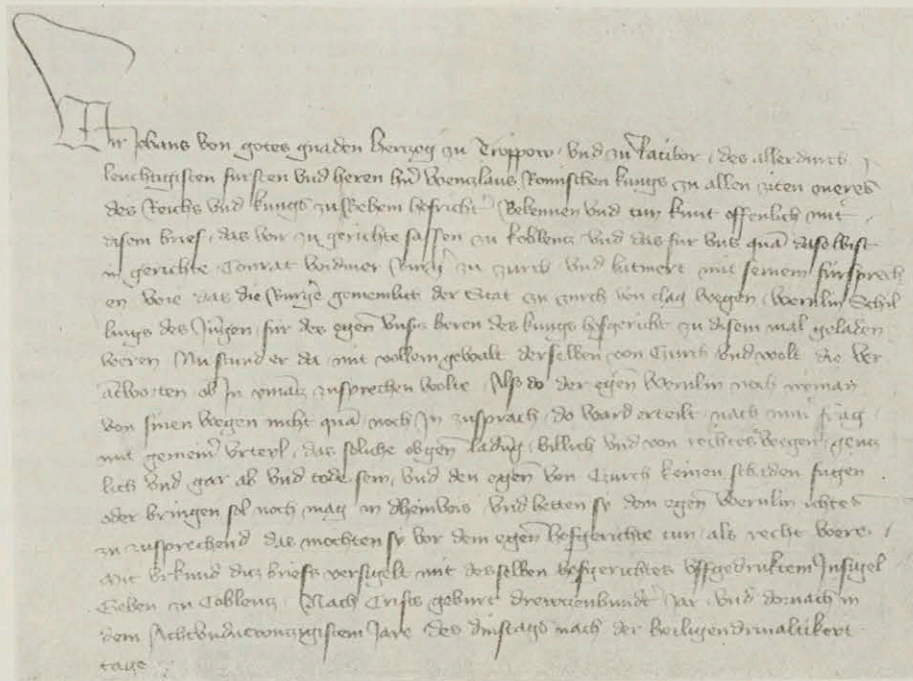 Wir Johans von gotes gnaden Herczog zu Troppow vnd zu Ratibor, des allerdurch
leuchtigisten fursten vnd heren hern Wenczlaus Romischen kungs zu allen ziten merers
des Reichs vnd kungs zu Behem hofrichter Bekennen vnd tun kunt offenlich mit
disem brief, das wir zu gerichte sassen zu koblencz vnd das fur vns quam daselbist
in gerichte Conrat Widmer Burger zu zurch vnd mit seinem fursprech
en wie das die Burger gemeinlich der Stat zu zurch von clag wegen Wernlin Schil
lings des Jungen fur des egen vnsers heren des kungs hofgericht zu disem mal geladen
weren Nu stund er da mit vollem gewalt derselben von Czurch vnd wolt die ver
antworten ob In yemant zusprechen wolte Also do der egen Wernlin noch nieman
von sinen wegen nicht quam noch In zusprach, do ward erteilt nach miner frag
mit gemeiner vrteyl, das soliche obgen ladung billich vnd von rechtes wegen gencz
lich vnd gar ab vnd tode sein, vnd den egen von Czurch keinen schaden fugen
oder bringen sol noch mag in dheinwis vnd hetten sy dem egen Wernlin ichtes
zu zusprechend das mochten sy vor dem egen hofgerichte tun als recht were
Mit vrkund dicz briefs versigelt mit desselben hofgerichtes vffgedruktem Insigel
Geben zu Coblencz Nach Crists geburt drewczenhundert Jar vnd dornach in
dem Achtvndnewnczigistem Jare des dinstags nach der heiligen drivaltikeit
tage